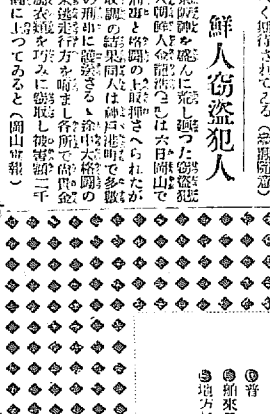 く優待されてゐる
鮮人窃盗犯人
を股に荒し廻つた窃盗犯
人朝鮮人金は六日岡山で
刑事と格闘の上取押さへられたが
取調の結果同人は神戸港町で多數
の刑事に護送さるゝ途中大格闘の
末逃走行方を晦まし各所で高價金
衣類を巧みに窃取し被害額二千
圓に上つてゐると（岡山電報）
◎普
◎舶來
◎地方